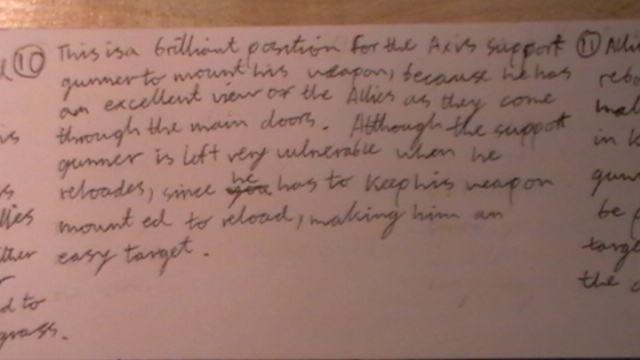 ⑩ This is a brilliant position for the Axis support
gunner to mount his weapon, because he has
an excellent view of the Allies as they come
through the main doors. Although the support
gunner is left very vulnerable when he
reloades, since he has to keep his weapon
mounted to reload, making him an
easy target.
is
llies
ther
r
d to
grass.
⑪ Alli
rebo
in k
gunn
be
targe
the